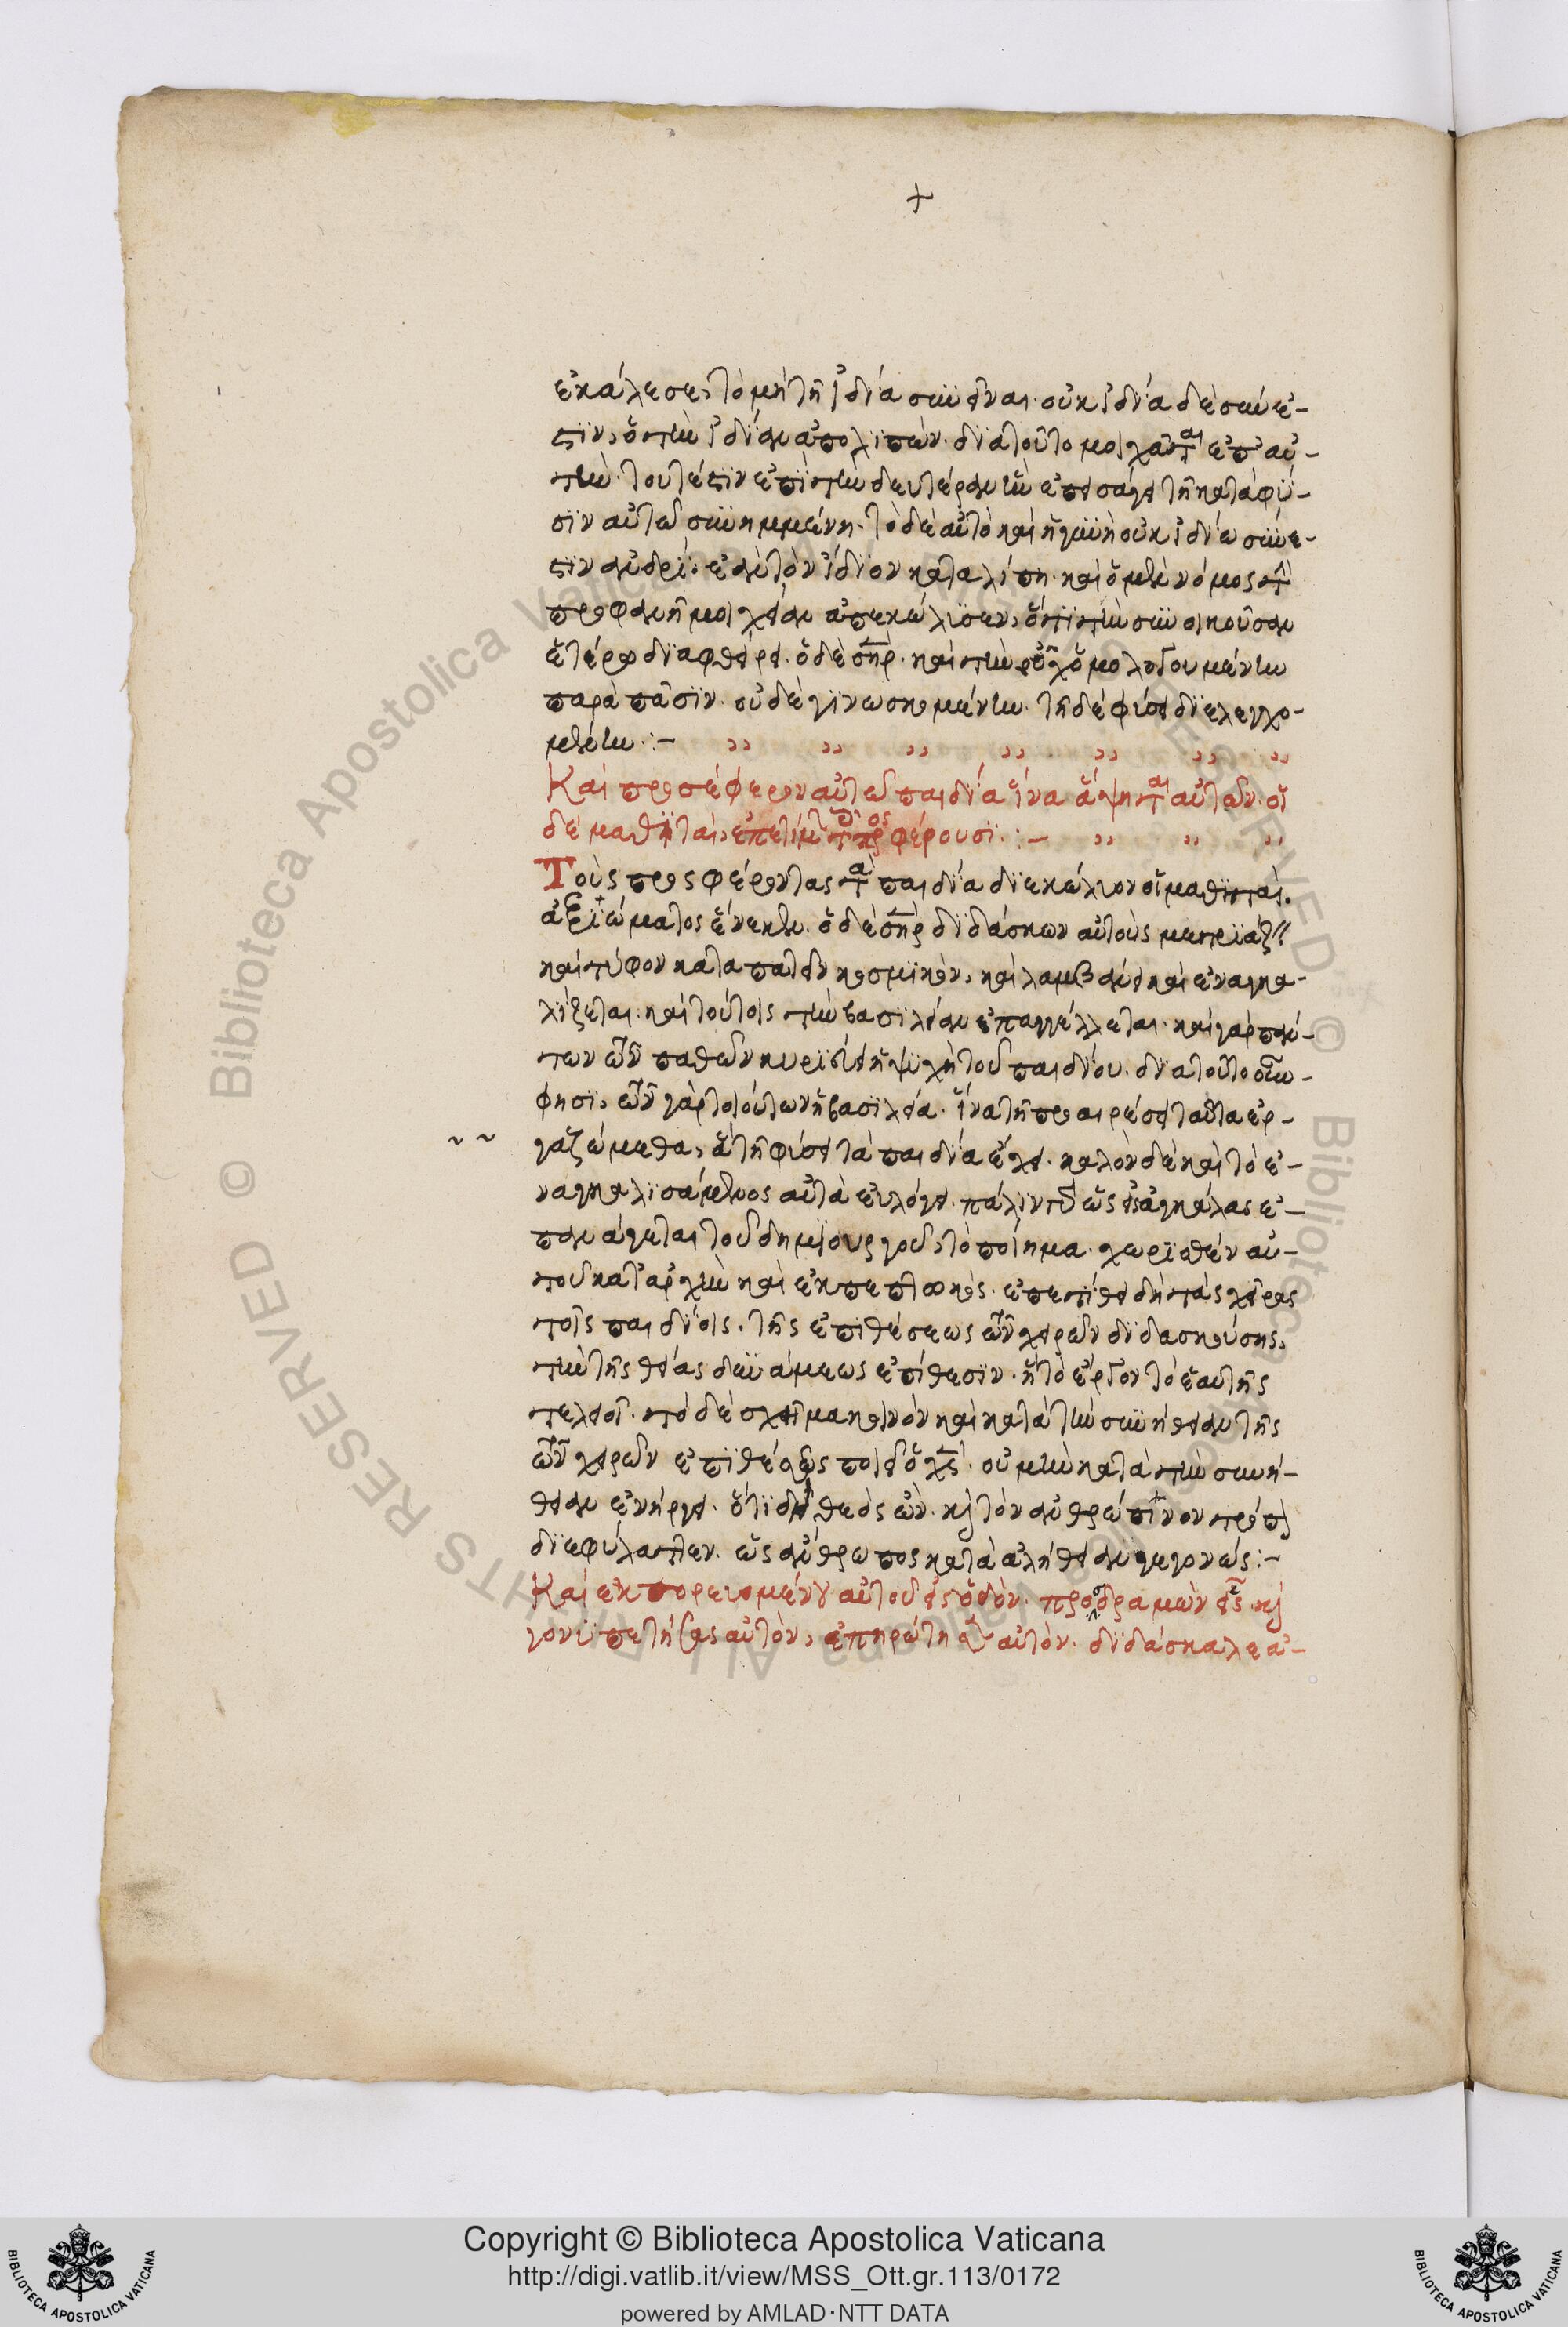 +
ἐκάλεσε, τὸ μὴ τῇ ἰδία συνεῖναι. οὐκ ἰδία δὲ σύνε-
στιν, ὁ τὴν ἰδίαν ἀπολιπών. διατοῦτο μοιχᾶται ἐπ' αὐ-
τήν. τουτέστιν ἐπὶ τὴν δευτέραν ἣν ἐπεισάγει τῇ κατὰ φύ-
σιν αὐτῶ συνημμένη. τὸ δὲ αὐτὸ καὶ ἡ γυνὴ οὐκ ἰδίω σύνε-
στιν ἀνδρί, ἐὰν τὸν ἴδιον καταλίπη. καὶ ὁ μὲν νόμος τὴν
προφανῆ μοιχείαν ἀπεκώλυσεν, ὅτι τὴν συνοικοῦσαν
ἑτέρω διαφθείρει. ὁ δὲ σηρ. καὶ τὴν οὐχ ὁμολογουμένην
παρὰ πᾶσιν. οὐδὲ γινωσκομένην. τῇ δὲ φύσει διελεγχο-
μένην :-
Καὶ προσέφερον αὐτῶ παιδία ἵνα ἅψηται αὐτῶν. οἱ
δὲ μαθηταὶ, ἐπετίμων τοῖς προσφέρουσι. :-
Τοὺς προσφέροντας τὰ παιδία διεκώλυον οἱ μαθηταί.
ἀξιώματος ἕνεκεν. ὁ δὲ σηρ διδάσκων αὐτοὺς μετριάζειν
καὶ τύφον καταπατεῖν κοσμικὸν, καὶ λαμβάνει καὶ ἐναγκα-
λίζεται. καὶ τούτοις τὴν βασιλείαν ἐπαγγέλλεται. καὶ γὰρ πάν-
των τῶν παθῶν καθαρεύει ἡ ψυχὴ τοῦ παιδίου. διατοῦτο οὖν
φησι, τῶν γὰρ τοιούτων ἡ βασιλεία. ἵνα τῇ προαιρέσει ταῦτα ἐρ-
γαζώμεθα, ἃ τῇ φύσει τὰ παιδία ἔχει. καλὸν δὲ καὶ τὸ ἐ-
ναγκαλισάμενος αὐτὰ εὐλόγει. πάλιν γὰρ ὡς εἰς ἀγκάλας ἐ-
πανάγεται τοῦ δημιουργοῦ, τὸ ποίημα. χωρισθὲν αὐ-
τοῦ κατ' ἀρχὴν καὶ ἐκπεπτωκός. ἐπετίθει δὴ τὰς χεῖρας
τοῖς παιδίοις. τῆς ἐπιθέσεως τῶν χειρῶν διδασκούσης,
τὴν τῆς θείας δυνάμεως ἐπίθεσιν. ἢ τὸ ἔργον τὸ ἑαυτῆς
τελεῖσθαι. τὸ δὲ σχῆμα κοινὸν καὶ κατὰ τὴν συνήθειαν τῆς
τῶν χειρῶν ἐπιθέσεως ποιεῖ ὁ χς. οὐ μὴν κατὰ τὴν συνή-
θειαν ἐνήργει. ὅτι δὴ θεὸς ὤν. καὶ τὸν ἀνθρώπινον τρόπον
διεφύλαττεν. ὡς ἄνθρωπος κατὰ ἀλήθειαν γεγονώς :-
Καὶ ἐκπορευομένου αὐτοῦ εἰς ὁδόν. προσδραμὼν εἷς καὶ
γονυπετήσας αὐτόν, ἐπηρώτησεν αὐτόν. διδάσκαλε ἀ-
Copyright © Biblioteca Apostolica Vaticana
http://digi.vatlib.it/view/MSS_Ott.gr.113/0172
powered by AMLAD·NTT DATA